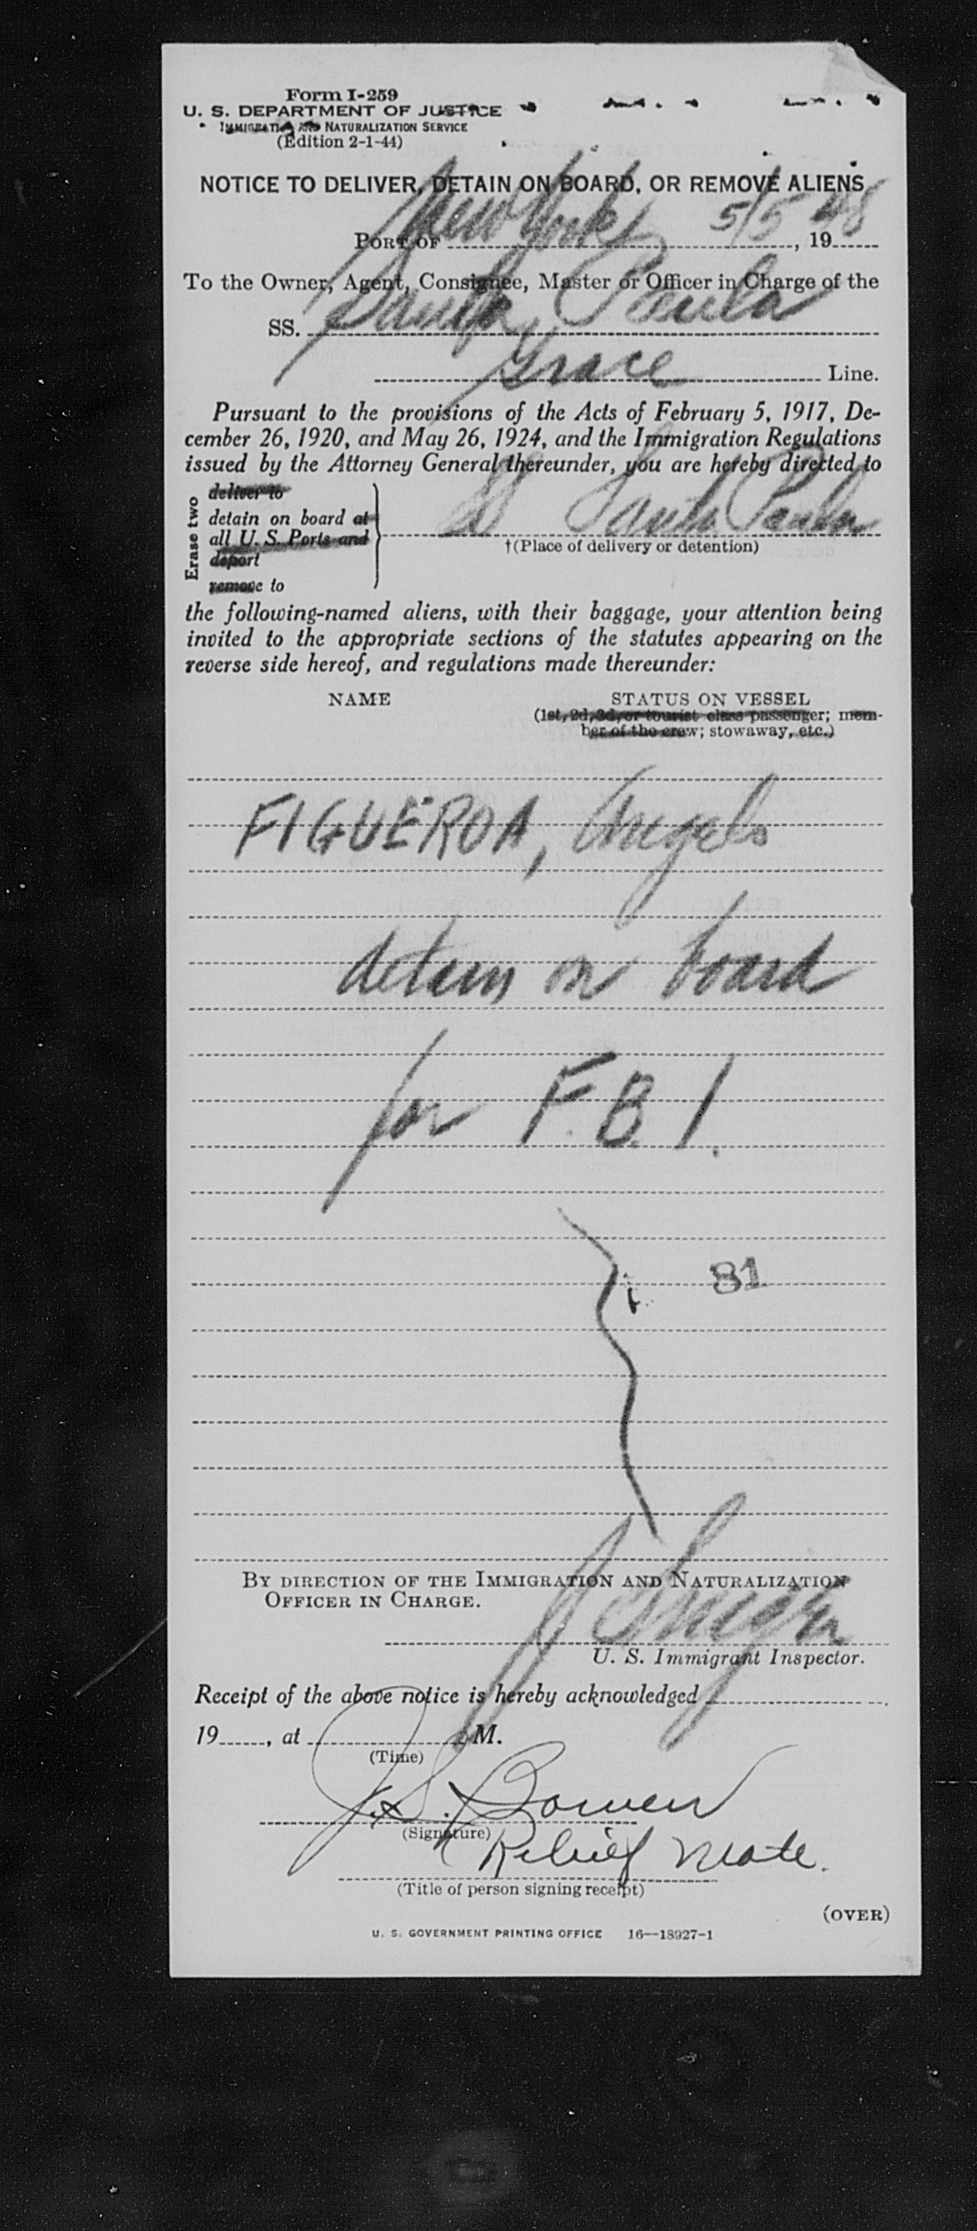 Form I-259
U. S. DEPARTMENT OF JUSTICE
IMMIGRATION AND NATURALIZATION SERVICE
(Edition 2-1-44)
NOTICE TO DELIVER, DETAIN ON BOARD, OR REMOVE ALIENS
PORT OF New York, 5/5, 1948
To the Owner, Agent, Consignee, Master or Officer in Charge of the
SS. Santa Paula
Grace Line.
Pursuant to the provisions of the Acts of February 5, 1917, De-
cember 26, 1920, and May 26, 1924, and the Immigration Regulations
issued by the Attorney General thereunder, you are hereby directed to
Erase two
deliver to
detain on board at
all U. S. Ports and
deport
remove to
SS Santa Paula
†(Place of delivery or detention)
the following-named aliens, with their baggage, your attention being
invited to the appropriate sections of the statutes appearing on the
reverse side hereof, and regulations made thereunder:
NAME STATUS ON VESSEL
(1st, 2d, 3d, or tourist class passenger; mem-
ber of the crew; stowaway, etc.)
FIGUEROA, Angelo
detain on board
for F.B.I.
81
BY DIRECTION OF THE IMMIGRATION AND NATURALIZATION
OFFICER IN CHARGE.
U. S. Immigrant Inspector.
Receipt of the above notice is hereby acknowledged
19, at M.
(Time)
J. S. Bowen
(Signature)
Relief Mate.
(Title of person signing receipt)
(OVER)
U. S. GOVERNMENT PRINTING OFFICE 16—18927-1